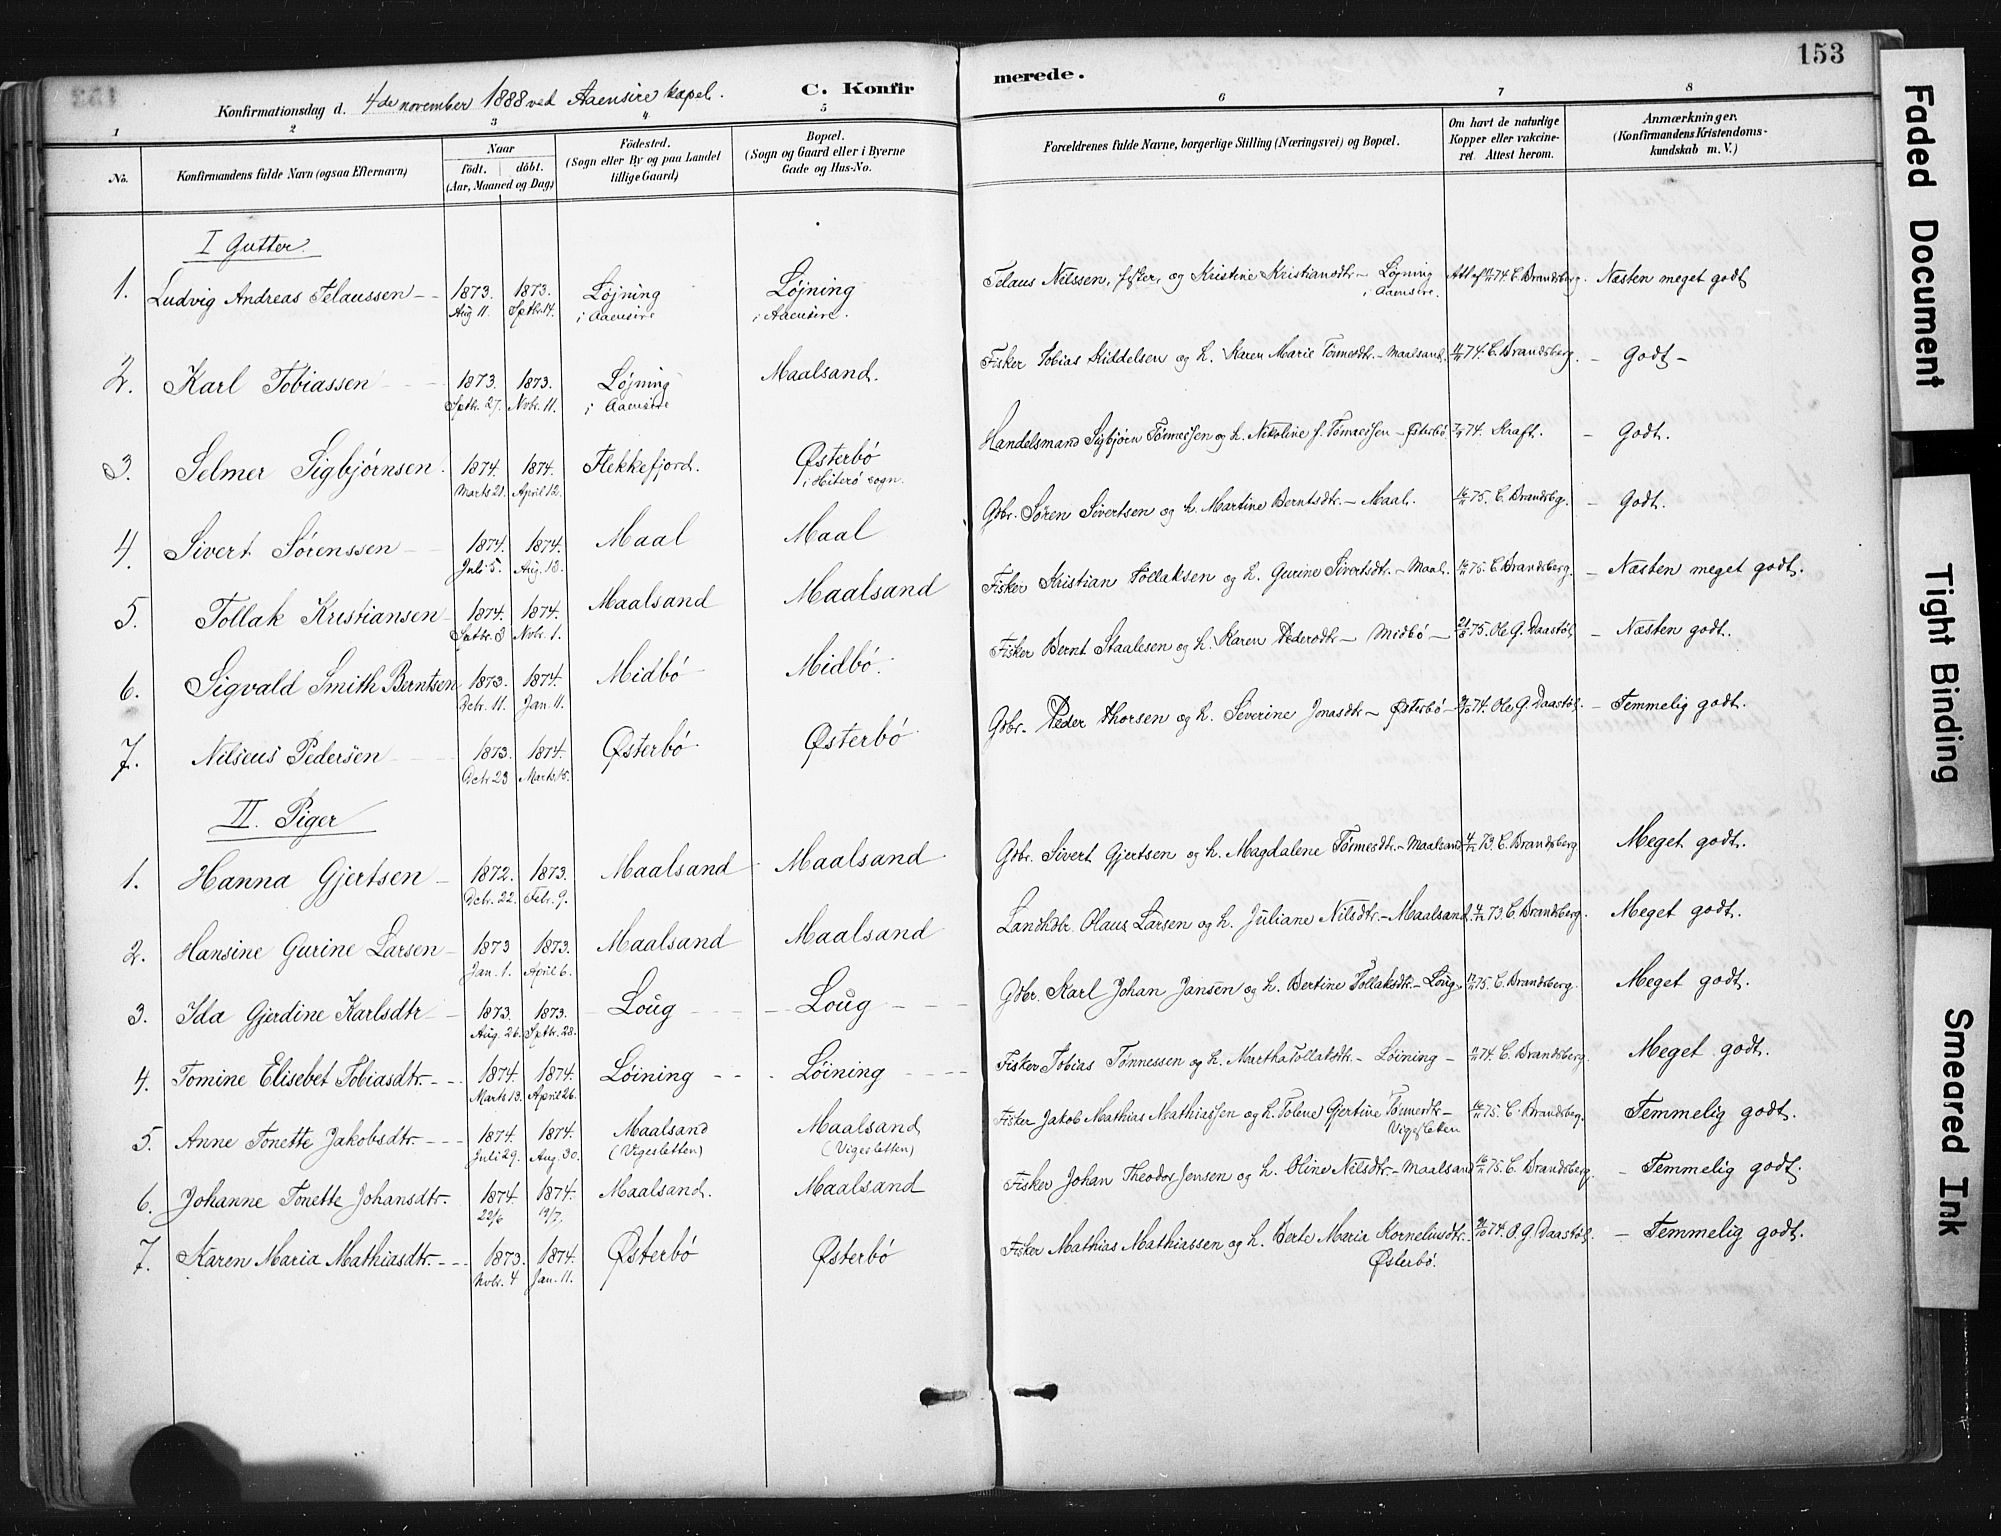 153
Konfirmationsdag d. 4de november 1888 ved Aaensire kapel.
C. Konfirmerede.
1 2 3 4 5 6 7 8
No.
Konfirmandens fulde Navn (ogsaa Efternavn)
Naar
födt. döbt.
(Aar, Maaned og Dag)
Födested.
(Sogn eller By og paa Landet
tillige Gaard)
Bopæl.
(Sogn og Gaard eller i Byerne
Gade og Hus-No.
Forældrenes fulde Navne, borgerlige Stilling (Næringsvei) og Bopæl.
Om havt de naturlige
Kopper eller vakcine-
ret. Attest herom.
Anmærkninger.
(Konfirmandens Kristendoms-
kundskab m. V.)
I Gutter.
1. Ludvig Andreas Telaussen 1873. 1873. Løjning Løjning Telaus Nilssen, og Kristine Kristiansdtr – Løjning 74. C. Brandsberg. Næsten meget godt
Aug 11. Sptbr. 14. i Aaensire i Aaensire. i Aaensire.
2. Karl Tobiassen 1873. 1873. Løjning Maalsand. Fisker Tobias Kiddelsen og h. Karen Marie Tønnesdtr. – Maalsand. 74. C. Brandsberg. – Godt –
Sptbr. 27. Nvbr. 11. i Aaensire
3. Selmer Sigbjørnsen. 1874. 1874. Flekkefjord. Østerbö Handelsmand Sigbjørn Tønnessen og h. Nikoline f. Tønnessen – Østerbö 74. Kraft. – Godt.
Marts 21. April 12. i Hiterø sogn.
4. Sivert Sørenssen 1874. 1874. Maal Maal Gdbr. Søren Sivertsen og h. Martine Berntsdtr. – Maal. 75. C. Brandsbg. – Godt.
Juli 5. Aug. 13.
5. Tollak Kristiansen 1874. 1874. Maalsand Maalsand Fisker Kristian Tollaksen og h. Gurine Sivertsdtr. – Maal. 75. C. Brandsberg. – Næsten meget godt.
Sptbr. 3 Nvbr. 1.
6. Sigvald Smith Berntsen 1873. 1874. Midbö Midbö. Fisker Bernt Staalesen og h. Karen Pedersdtr – Midbö – 75. Ole G. Daastöl – Næsten godt.
Octr. 11. Jan. 11.
7. Nilseus Pedersen 1873. 1874. Østerbö Østerbö Gdbr. Peder Thorsen og h. Severine Jonasdtr – Østerbö – 74. Ole G. Daastöl. – Temmelig godt.
Octr 23 Marts 15.
II. Piger
1. Hanna Gjertsen 1872. 1873. Maalsand Maalsand Gdbr. Sivert Gjertsen og h. Magdalene Tønnesdtr. – Maalsand 73. C. Brandsberg Meget godt.
Octr. 22. Febr. 9.
2. Hansine Gurine Larsen 1873 1873. Maalsand Maalsand Landhdlr. Olaus Larsen og h. Juliane Nilsdtr. – Maalsand. 73. C. Brandsberg. Meget godt.
Jan. 1. April 6.
3. Ida Gjerdine Karlsdtr 1873. 1873. Loug Loug Gdbr. Karl Johan Jansen og h. Bertine Tollaksdtr. – Loug. 75. C. Brandsberg. Meget godt.
Aug. 26. Sptbr. 28.
4. Tomine Elisebet Tobiasdtr. 1874. 1874. Löining Löining Fisker Tobias Tønnessen og h. Martha Tollaksdtr. – Löining – 74. C. Brandsberg. Meget godt.
Marts 13. April 26.
5. Anne Tonette Jakobsdtr. 1874. 1874. Maalsand Maalsand Fisker Jakob Mathias Mathiassen og h. Tolene Gjertine Tønnesdtr – 75. C. Brandsberg. Temmelig godt.
Juli 29. Aug. 30. (Vigesletten) (Vigesletten) Vigesleten
6. Johanne Tonette Johansdtr. 1874 1874. Maalsand. Maalsand Fisker Johan Theodor Jensen og h. Oline Nilsdtr. – Maalsand 75. C. Brandsberg. – Temmelig godt.
22/6 19/7.
7. Karen Maria Mathiasdtr. 1873. 1874. Østerbö Østerbö Fisker Mathias Mathiassen og h. Berte Maria Korneliusdtr. 74. O. G. Daastöl. – Temmelig godt.
Nvbr. 4 Jan. 11. Østerbö.
Faded Document
Tight Binding
Smeared Ink